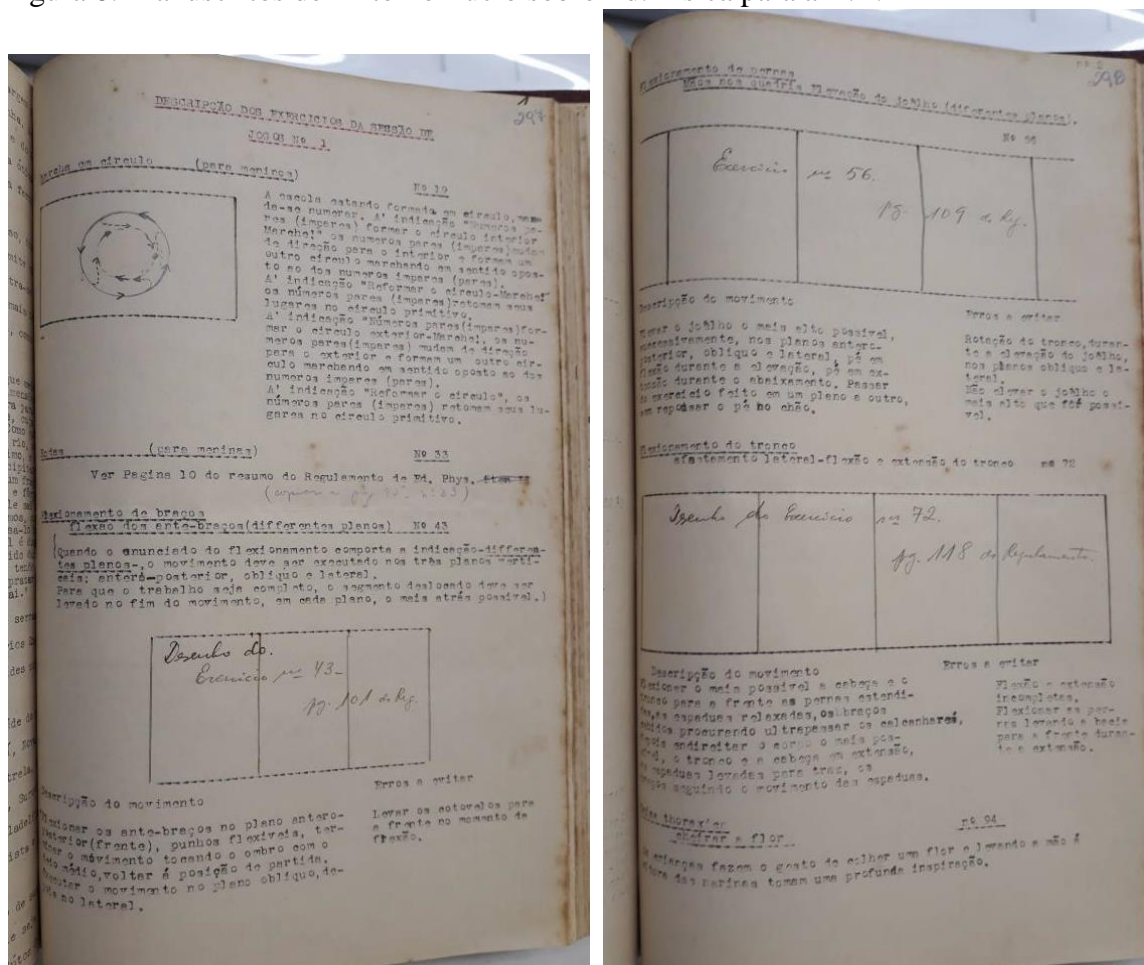 DESCRIPÇÃO DOS EXERCICIOS DA SESSÃO DE
JOGOS Nº 1
1
297
Marcha em circulo (para meninos)
Nº 19
A escola estando formada em circulo, man
da-se numerar. A' indicação "Numeros pa-
res (impares) formar o circulo interior
Marche!" os numeros pares (impares) mudam
de direção para o interior e formam um
outro circulo marchando em sentido opos-
to ao dos numeros impares (pares).
A' indicação "Reformar o circulo-Marche!"
os números pares (impares) retomam seus
lugares no circulo primitivo.
A' indicação "Números pares(impares)for-
mar o circulo exterior-Marche!, os nu-
meros pares(impares) mudam de direção
para o exterior e formam um outro cir-
culo marchando em sentido oposto ao dos
numeros impares (pares).
A' indicação "Reformar o circulo", os
números pares (impares) retomam seus lu-
gares no circulo primitivo.
Rodas (para meninas) Nº 33
Ver Pagina 10 do resumo do Regulamento de Ed. Phys.
Flexionamento de braços
flexão dos ante-braços(differentes planos) Nº 43
(Quando o enunciado do flexionamento comporta a indicação-differen-
tes planos-,o movimento deve ser executado nos três planos verti-
cais: antero-posterior, obliquo e lateral.
Para que o trabalho seja completo, o segmento deslocado deve ser
levado no fim do movimento, em cada plano, o mais atrás possivel.)
Desenho do.
Exercicio nº 43-
pg. 101 do Reg.
Erros a evitar
Descripção do movimento
Flexionar os ante-braços no plano antero-
posterior(frente), punhos flexiveis, ter-
minar o movimento tocando o ombro com o
dedo médio,voltar á posição de partida.
Executar o movimento no plano obliquo,de-
pois no lateral.
Levar os cotovelos para
a frente no momento de
flexão.
298
Flexionamento de pernas
Mãos nos quadris Elevação do joêlho (diferentes planos).
Nº 56
Exercicio nº 56.
pg. 109 do Reg.
Descripção do movimento
Erros a evitar
Elevar o joêlho o mais alto possivel,
successivamente, nos planos antero-
posterior, obliquo e lateral, pé em
flexão durante a elevação, pé em ex-
tensão durante o abaixamento. Passar
do exercicio feito em um plano a outro,
sem repousar o pé no chão.
Rotação do tronco,duran-
te a elevação do joêlho,
nos planos obliquo e la-
teral.
Não elevar o joêlho o
mais alto que fôr possi-
vel.
Flexionamento do tronco
afastamento lateral-flexão e extensão do tronco nº 72
Desenho do Exercicio nº 72.
pg. 118 do Regulamento.
Descripção do movimento
Erros a evitar
Flexionar o mais possivel a cabeça e o
tronco para a frente as pernas estendi-
das,as espaduas relaxadas,os braços
cahidos procurendo ultrapassar os calcanhares,
depois endireitar o corpo o mais pos-
sivel, o tronco e a cabeça em extensão,
as espaduas levadas para traz, os
braços seguindo o movimento das espaduas.
Flexão e extensão
incompletas.
Flexionar as per-
nas levando a bacia
para a frente duran-
te a extensão.
nº 94
cheirar a flor
As crianças fazem o gesto de colher uma flor e levando a mão á
altura das narinas tomam uma profunda inspiração.